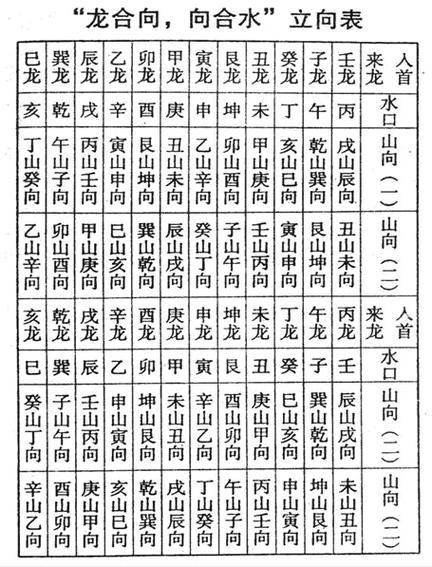 “龙合向，向合水”立向表
人首来龙 壬龙 子龙 癸龙 丑龙 艮龙 寅龙 甲龙 卯龙 乙龙 辰龙 巽龙 巳龙
水口 丙 午 丁 未 坤 申 庚 酉 辛 戌 乾 亥
山向（一） 戌山辰向 乾山巽向 亥山巳向 甲山庚向 卯山酉向 乙山辛向 丑山未向 艮山坤向 寅山申向 丙山壬向 午山子向 丁山癸向
山向（二） 丑山未向 艮山坤向 寅山申向 壬山丙向 子山午向 癸山丁向 辰山戌向 巽山乾向 巳山亥向 甲山庚向 卯山酉向 乙山辛向
人首来龙 丙龙 午龙 丁龙 未龙 坤龙 申龙 庚龙 酉龙 辛龙 戌龙 乾龙 亥龙
水口 壬 子 癸 丑 艮 寅 甲 卯 乙 辰 巽 巳
山向（二） 辰山戌向 巽山乾向 巳山亥向 庚山甲向 酉山卯向 辛山乙向 未山丑向 坤山艮向 申山寅向 壬山丙向 子山午向 癸山丁向
山向（二） 未山丑向 坤山艮向 申山寅向 丙山壬向 午山子向 丁山癸向 戌山辰向 乾山巽向 亥山巳向 庚山甲向 酉山卯向 辛山乙向